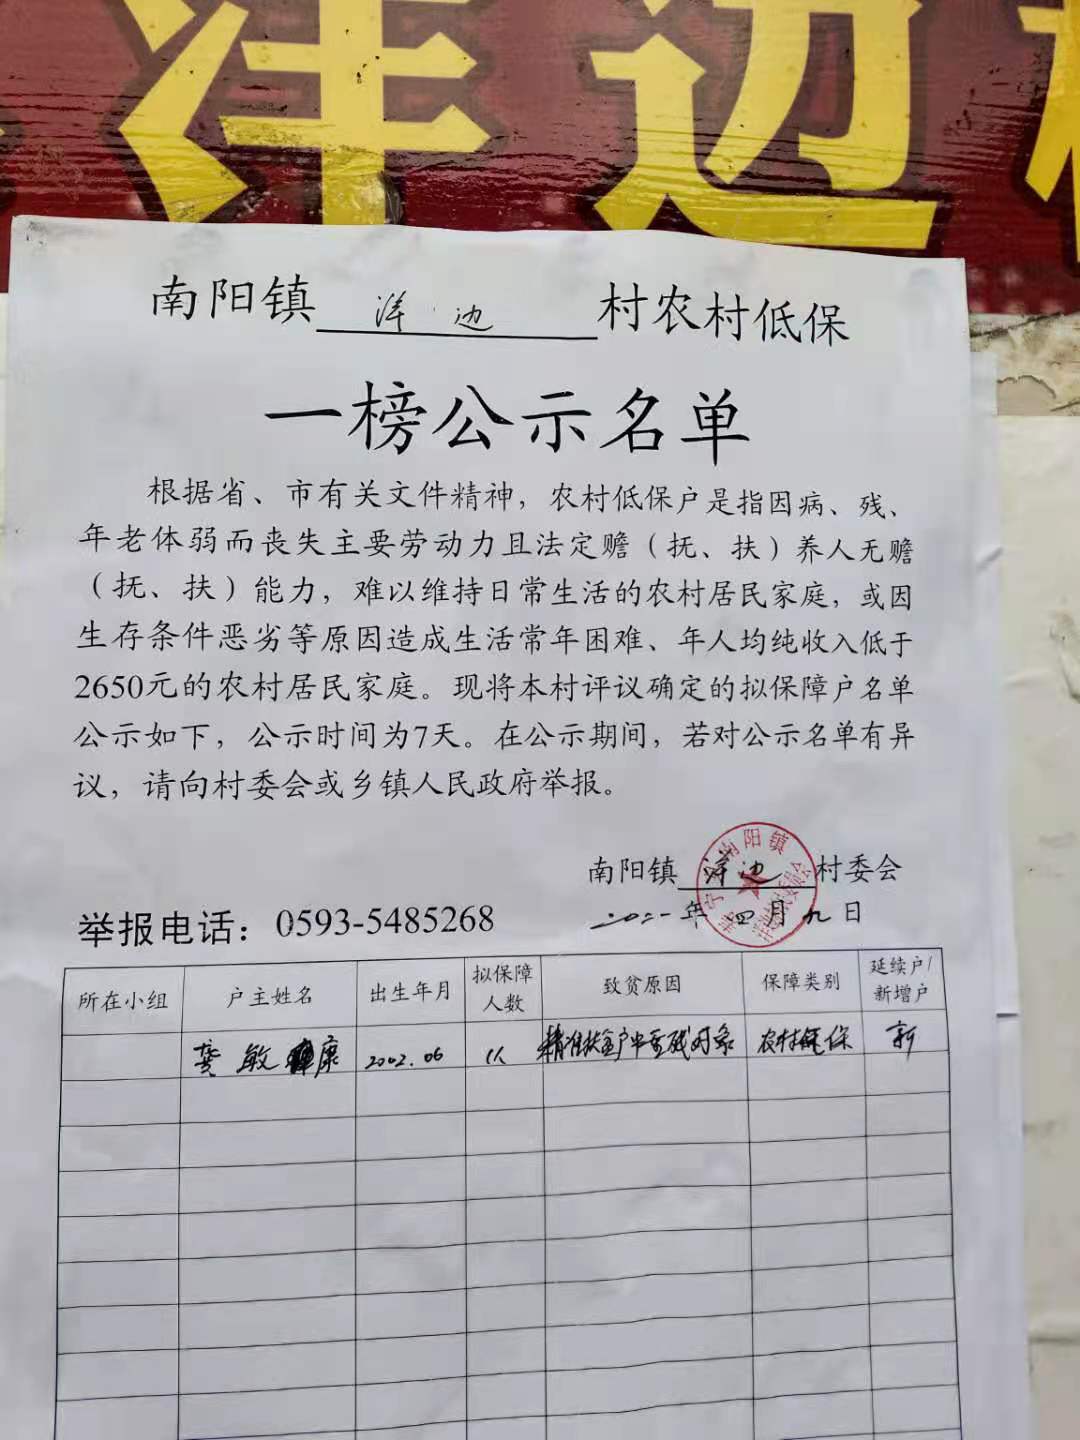 洋边村
南阳镇 洋边 村农村低保
一榜公示名单
根据省、市有关文件精神，农村低保户是指因病、残、
年老体弱而丧失主要劳动力且法定赡（抚、扶）养人无赡
（抚、扶）能力，难以维持日常生活的农村居民家庭，或因
生存条件恶劣等原因造成生活常年困难、年人均纯收入低于
2650元的农村居民家庭。现将本村评议确定的拟保障户名单
公示如下，公示时间为7天。在公示期间，若对公示名单有异
议，请向村委会或乡镇人民政府举报。
南阳镇 洋边 村委会
举报电话：0593-5485268 二〇二一年四月九日
所在小组 户主姓名 出生年月 拟保障人数 致贫原因 保障类别 延续户/新增户
龚敏康 2002.06 1人 精准扶贫户中重残对象 农村低保 新